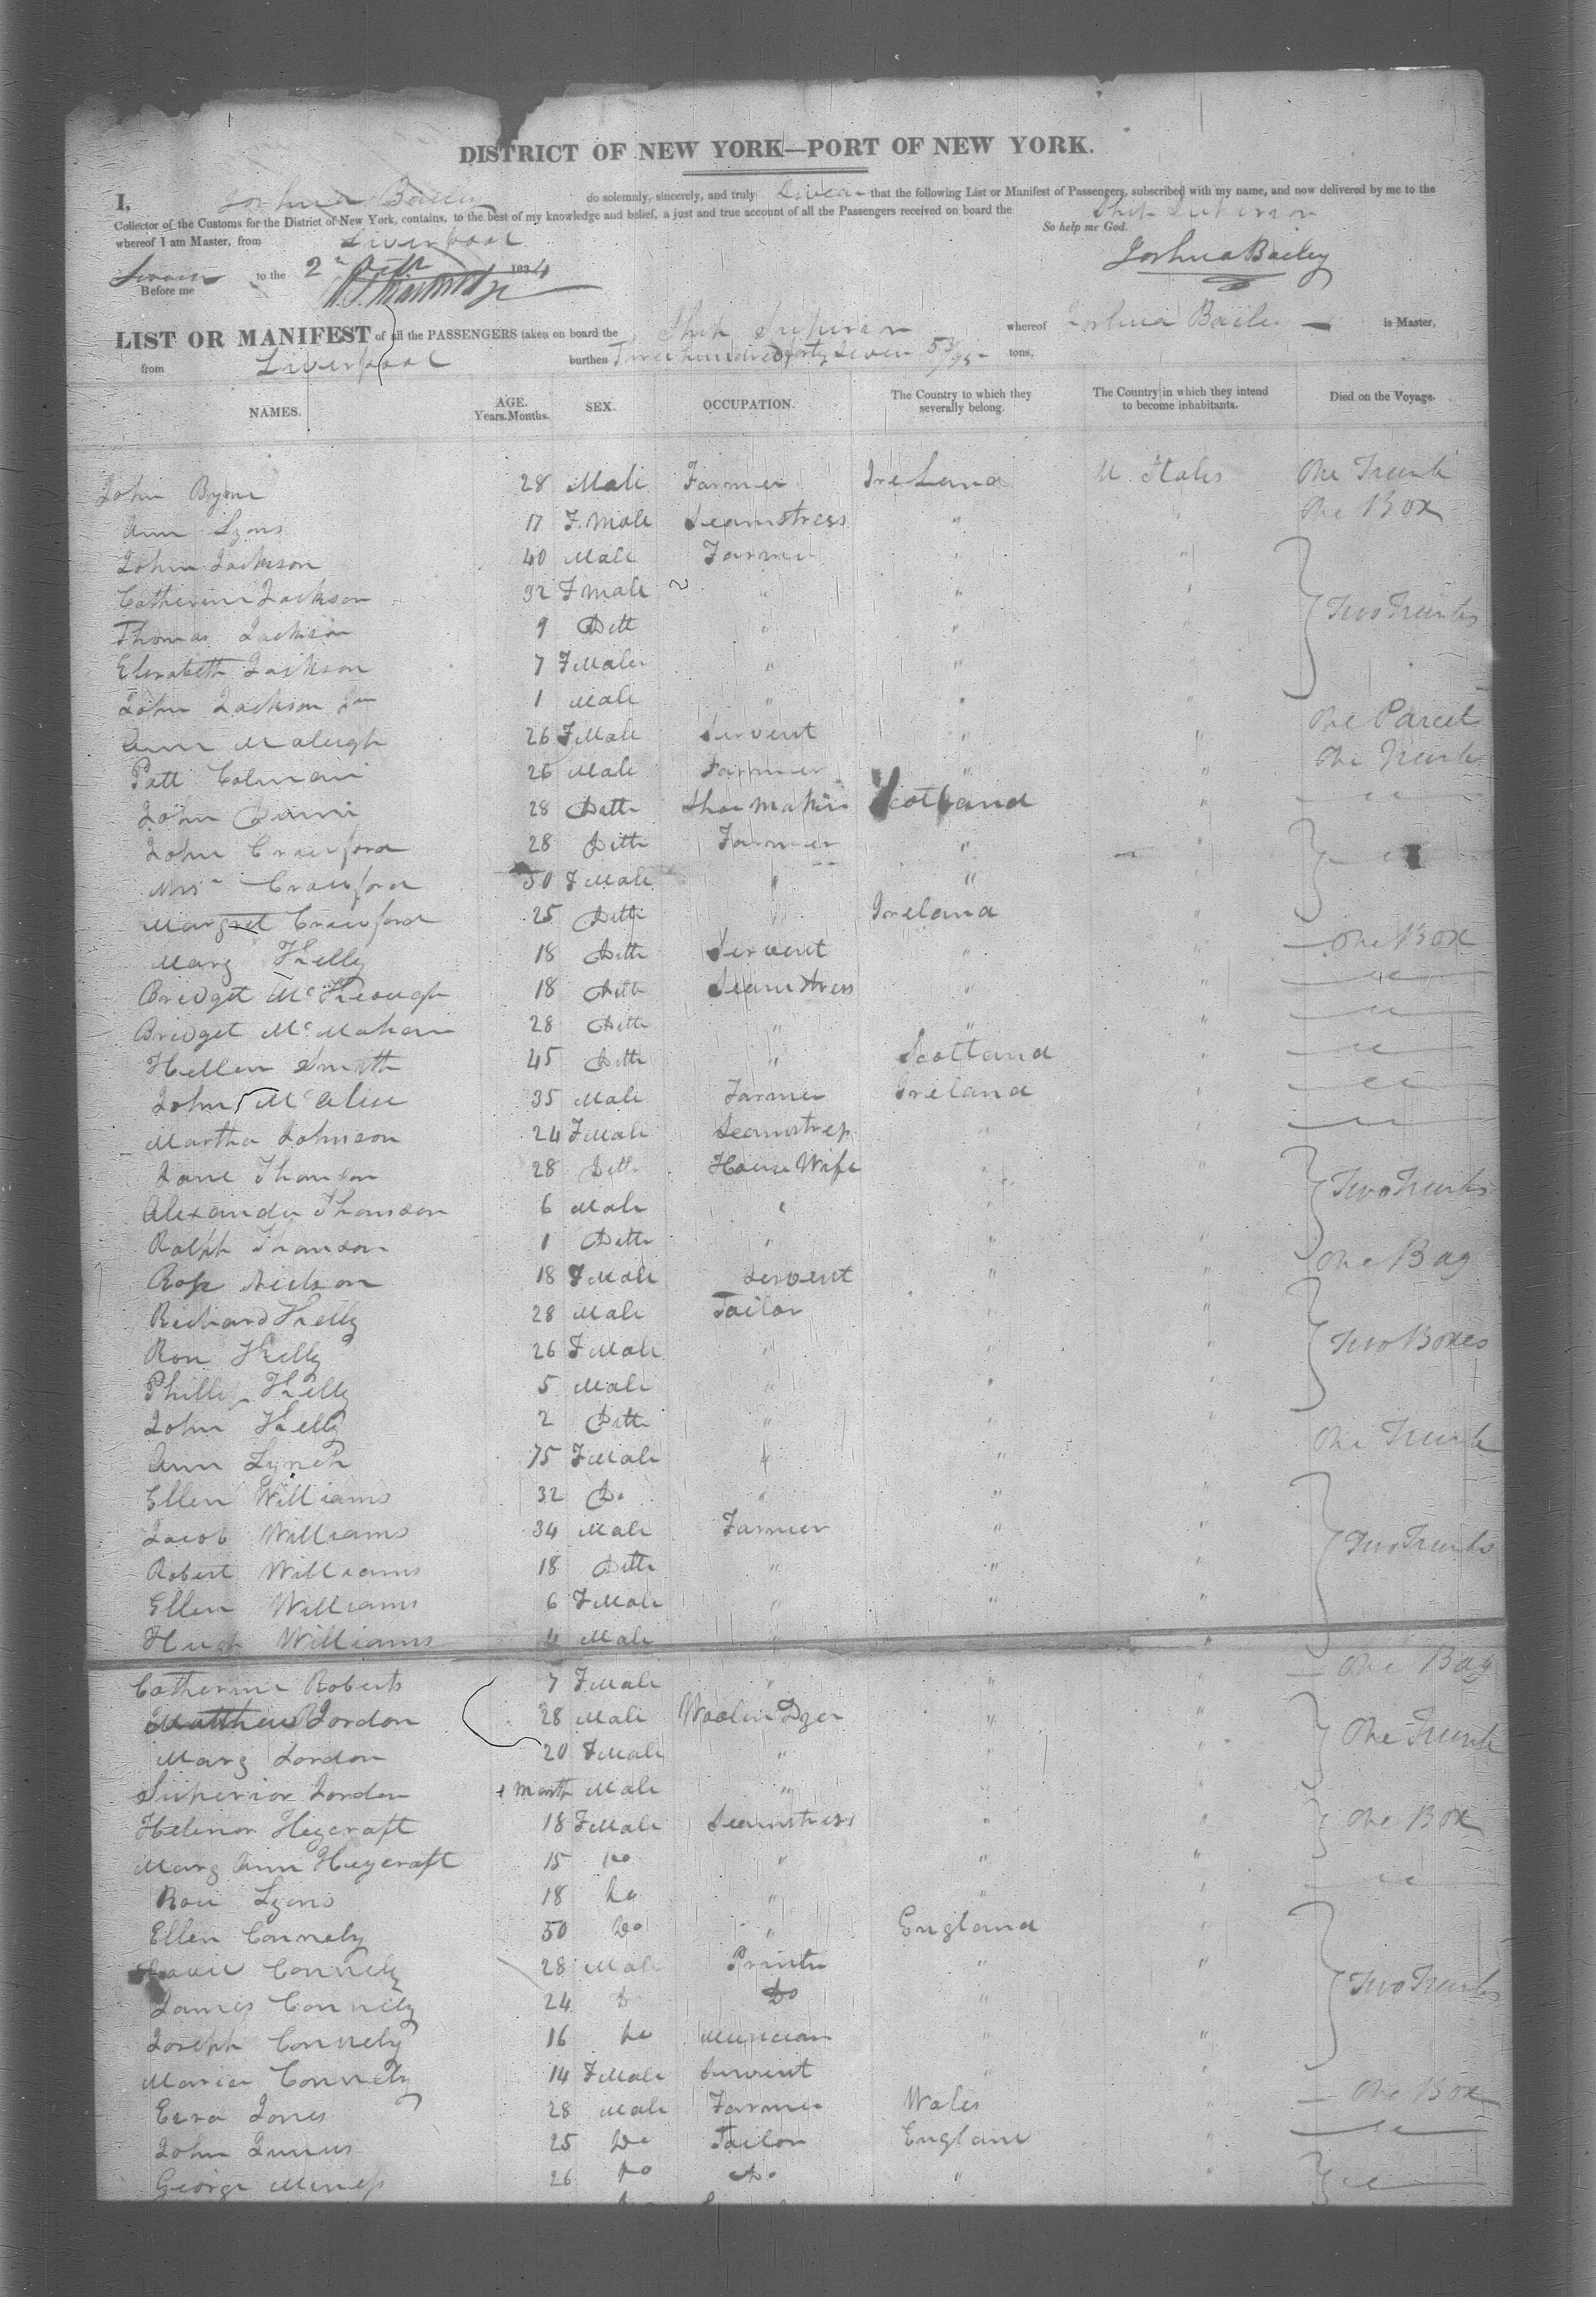 DISTRICT OF NEW YORK—PORT OF NEW YORK.
I, Joshua Bailey do solemnly, sincerely, and truly Swear that the following List or Manifest of Passengers, subscribed with my name, and now delivered by me to the
Collector of the Customs for the District of New York, contains, to the best of my knowledge and belief, a just and true account of all the Passengers received on board the Ship Superior
whereof I am Master, from Liverpool So help me God.
Sworn to the 2 1834 Joshua Bailey
Before me
LIST OR MANIFEST of all the PASSENGERS taken on board the Ship Superior whereof Joshua Bailey is Master,
from Liverpool burthen Three hundred forty Seven 53/95 tons.
NAMES. AGE. Years. Months. SEX. OCCUPATION. The Country to which they severally belong. The Country in which they intend to become inhabitants. Died on the Voyage.
John Byrne 28 Male Farmer Ireland U. States One Trunk
Ann Lyons 17 F. Male Seamstress " " One Box
John Jackson 40 Male Farmer " "
Catherine Jackson 32 F Male " " "
Thomas Jackson 9 Ditto " " " Two Trunks
Elizabeth Jackson 7 F Male " " "
John Jackson Jun 1 Male " " "
Ann 26 F Male Servent " " One Parcel
Patt Colman 26 Male Farmer " " One Trunk
John 28 Ditto Shoe Maker Scotland " "
John Crawford 28 Ditto Farmer " " "
Mrs Crawford 50 F Male " " "
Margret Crawford 25 Ditto " Ireland "
Mary Kelly 18 Ditto Servent " " One Box
Bridget McKeough 18 Ditto Seamstress " " "
Bridget McMahon 28 Ditto " " " "
Hellen Smith 45 Ditto " Scotland " "
John 35 Male Farmer Ireland " "
Martha Johnson 24 F Male Seamstress " " "
Jane Thomson 28 Ditto House Wife " "
Alexander Thomson 6 Male " " " Two Trunks
Ralph Thomson 1 Ditto " " "
Ross Neilson 18 F Male Servent " " One Bag
Richard Kelly 28 Male Tailor " "
Ron Kelly 26 F Male " " " Two Boxes
Phillip Kelly 5 Male " " "
John Kelly 2 Ditto " " "
Ann Lynch 75 F Male " " " One Trunk
Ellen Williams 32 Do " " "
Jacob Williams 34 Male Farmer " " Two Trunks
Robert Williams 18 Ditto " " "
Ellen Williams 6 F Male " " "
Hugh Williams 4 Male " " "
Catherine Roberts 7 F Male " " " One Bag
Matthew Jordon 28 Male Woolin Dyer " "
Mary Jordon 20 F Male " " " One Trunk
Superior Jordon 1 month Male " " "
Helenor Heycraft 18 F Male Seamstress " " One Box
Mary Ann Heycraft 15 Do " " "
Ron Lyons 18 Do " " " "
Ellen Connely 50 Do " England "
Connely 28 Male Printer " "
James Connely 24 D Do " Two Trunks
Joseph Connely 16 Do Musician " "
Maria Connely 14 F Male Servent " "
Ezra Jones 28 Male Farmer Wales " One Box
John 25 Do Tailor England " "
George 26 Do Do " " "